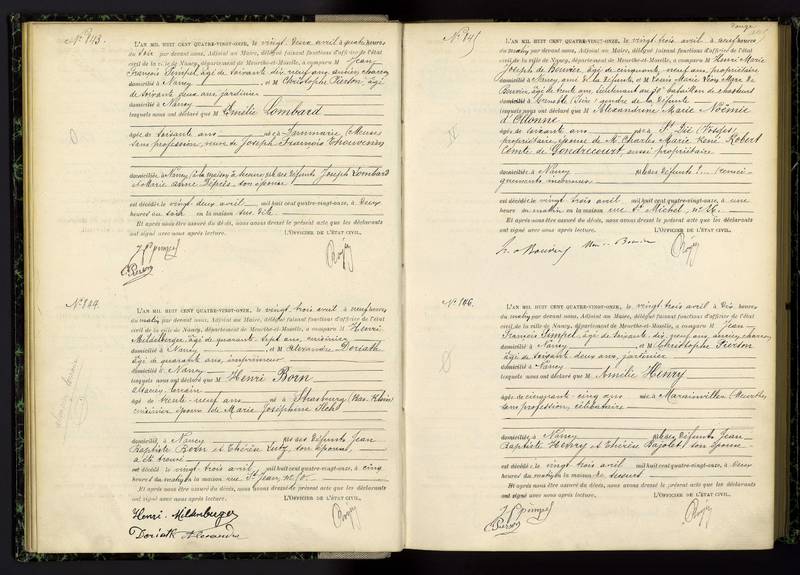 N° 143.
L'AN MIL HUIT CENT QUATRE-VINGT-ONZE, le vingt-deux avril à quatre heures
du soir par devant nous, Adjoint au Maire, délégué faisant fonctions d'officier de l'état
civil de la ville de Nancy, département de Meurthe-et-Moselle, a comparu M Jean
François Simpel, âgé de soixante dix neuf ans, ancien charron
domicilié à Nancy et M Christophe Pierson, âgé
de soixante deux ans, jardinier
domicilié à Nancy
lesquels nous ont déclaré que M Emélie Lombard
âgée de soixante ans née à (Meuse)
sans profession, veuve de Joseph François Thouvenin
domiciliée à Nancy (à la maison de secours) fille des défunts Joseph Lombard
et Marie Anne Déprès, son épouse
est décédée le vingt-deux avril mil huit cent quatre-vingt-onze, à deux
heures du soir en la maison sus dite
Et après nous être assuré du décès, nous avons dressé le présent acte que les déclarants
ont signé avec nous après lecture. L'OFFICIER DE L'ÉTAT CIVIL,
N° 144.
L'AN MIL HUIT CENT QUATRE-VINGT-ONZE, le vingt-trois avril à neuf heures
du matin par devant nous, Adjoint au Maire, délégué faisant fonctions d'officier de l'état
civil de la ville de Nancy, département de Meurthe-et-Moselle, a comparu M Henri
Mildenberger, âgé de quarante-sept ans, cuisinier
domicilié à Nancy et M Alexandre Doriath
âgé de quarante ans, imprimeur
domicilié à Nancy
lesquels nous ont déclaré que M Henri Born
alsacien lorrain
âgé de trente-neuf ans né à Strasbourg (Bas-Rhin)
cuisinier, époux de Marie Joséphine
domicilié à Nancy fils des défunts Jean
Baptiste Born et Thérèse Lutz, son épouse,
a été trouvé
est décédé le vingt-trois avril mil huit cent quatre-vingt-onze, à cinq
heures du matin en la maison rue St Jean, n°
Et après nous être assuré du décès, nous avons dressé le présent acte que les déclarants
ont signé avec nous après lecture. L'OFFICIER DE L'ÉTAT CIVIL,
Henri Mildenberger
Doriath Alexandre
N° 145
L'AN MIL HUIT CENT QUATRE-VINGT-ONZE, le vingt-trois avril à neuf heures
du matin par devant nous, Adjoint au Maire, délégué faisant fonctions d'officier de l'état
civil de la ville de Nancy, département de Meurthe-et-Moselle, a comparu M Henri Marie
Joseph de Bouvier, âgé de cinquante neuf ans, propriétaire
domicilié à Nancy de la défunte et M Louis Marie
Bouvier, âgé de trente ans, lieutenant au bataillon de chasseurs
domicilié à Grenoble (Isère) gendre de la défunte
lesquels nous ont déclaré que M Alexandrine Marie Noémie
d'Ollonne
âgée de soixante ans née à St Dié (Vosges)
propriétaire, épouse de Mr Charles Marie René Robert
Comte de Gondrecourt, aussi propriétaire
domiciliée à Nancy fille des défunts (rensei-
gnements inconnus
est décédée le vingt-trois avril mil huit cent quatre-vingt-onze, à une
heure du matin en la maison rue St Michel, n° 26.
Et après nous être assuré du décès, nous avons dressé le présent acte que les déclarants
ont signé avec nous après lecture. L'OFFICIER DE L'ÉTAT CIVIL,
N° 146.
L'AN MIL HUIT CENT QUATRE-VINGT-ONZE, le vingt-trois avril à dix heures
du matin par devant nous, Adjoint au Maire, délégué faisant fonctions d'officier de l'état
civil de la ville de Nancy, département de Meurthe-et-Moselle, a comparu M Jean
François Simpel, âgé de soixante dix neuf ans, ancien charron
domicilié à Nancy et M Christophe Pierson
âgé de soixante deux ans, jardinier
domicilié à Nancy
lesquels nous ont déclaré que M Amélie Henry
âgée de cinquante-cinq ans née à Marainviller (Meurthe)
sans profession, célibataire
domiciliée à Nancy fille des défunts Jean
Baptiste Henry et Thérèse Bajolet, son épouse
est décédée le vingt-trois avril mil huit cent quatre-vingt-onze, à deux
heures du matin en la maison de secours
Et après nous être assuré du décès, nous avons dressé le présent acte que les déclarants
ont signé avec nous après lecture. L'OFFICIER DE L'ÉTAT CIVIL,